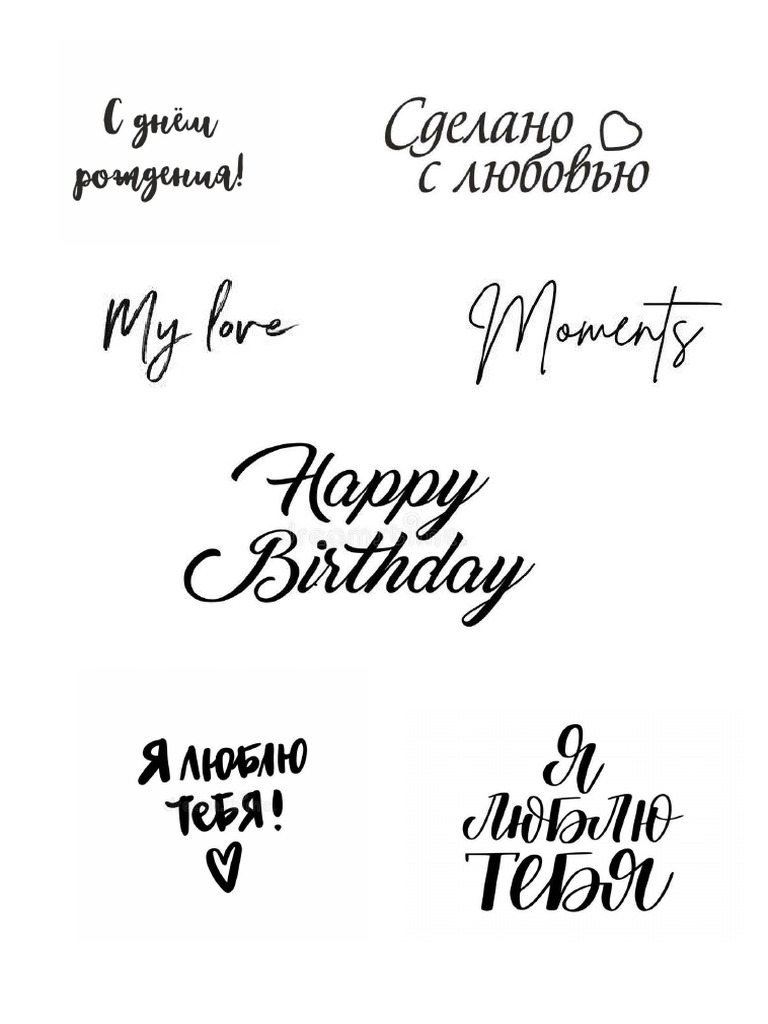 С днём
рождения!
Сделано
с любовью
My love
Moments
Happy
Birthday
Я люблю
тебя!
Я
люблю
тебя